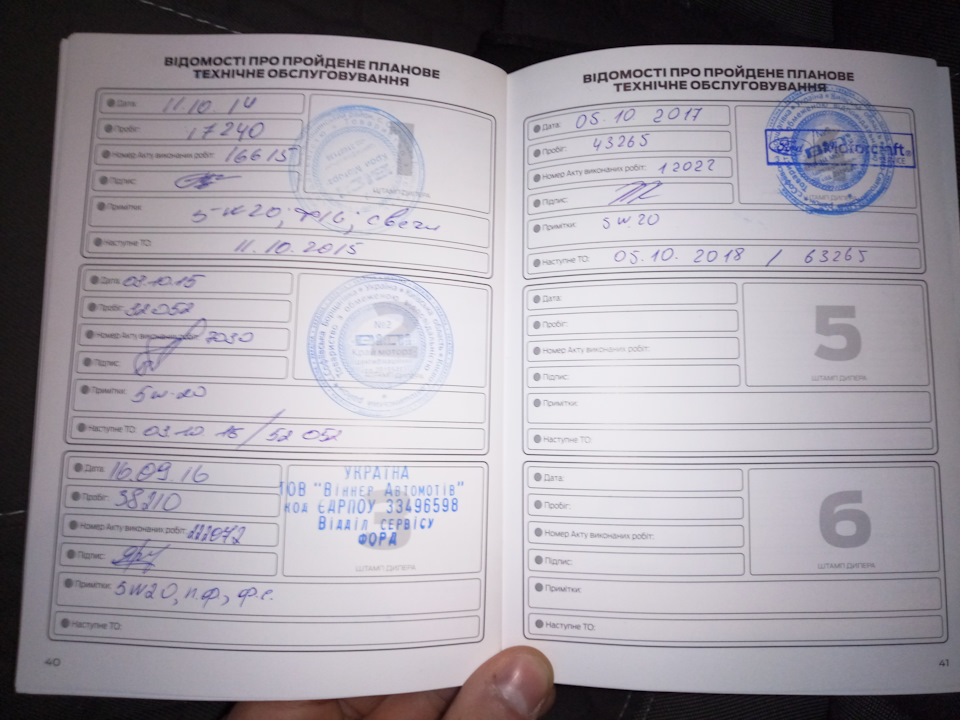 ВІДОМОСТІ ПРО ПРОЙДЕНЕ ПЛАНОВЕ
ТЕХНІЧНЕ ОБСЛУГОВУВАННЯ
Дата: 11.10 14
Пробіг: 17240
Номер Акту виконаних робіт: 16615
Підпис:
1
ШТАМП ДИЛЕРА
Примітки: 5-W20; ; свечи
Наступне ТО: 11.10.2015
Дата: 03.10.15
Пробіг: 32052
Номер Акту виконаних робіт: 7030
Підпис:
2
№2
Примітки: 5w-20
Наступне ТО: 03.10 16 / 52 052
Дата: 16.09.16
Пробіг: 38210
Номер Акту виконаних робіт:
Підпис:
3
УКРАЇНА
ТОВ "Віннер Автомотів"
код ЄДРПОУ 33496598
Відділ сервісу
ФОРД
ШТАМП ДИЛЕРА
Примітки: 5W20, п.ф., ф.с.
Наступне ТО:
40
ВІДОМОСТІ ПРО ПРОЙДЕНЕ ПЛАНОВЕ
ТЕХНІЧНЕ ОБСЛУГОВУВАННЯ
Дата: 05.10.2017
Пробіг: 43265
Номер Акту виконаних робіт: 12022
Підпис:
4
Ford Motorcraft
ШТАМП ДИЛЕРА
Примітки: 5W.20
Наступне ТО: 05.10.2018 / 63265
Дата:
Пробіг:
Номер Акту виконаних робіт:
Підпис:
5
ШТАМП ДИЛЕРА
Примітки:
Наступне ТО:
Дата:
Пробіг:
Номер Акту виконаних робіт:
Підпис:
6
ШТАМП ДИЛЕРА
Примітки:
Наступне ТО:
41